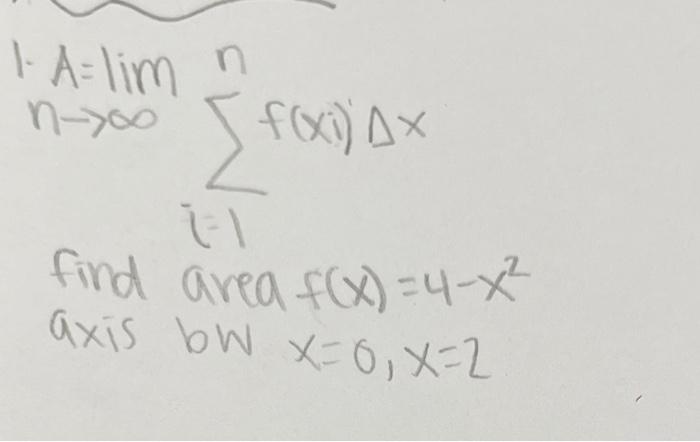 1. A=lim n
n→∞ ∑ f(xi) Δx
i=1
find area f(x) = 4-x²
axis bw x=0, x=2